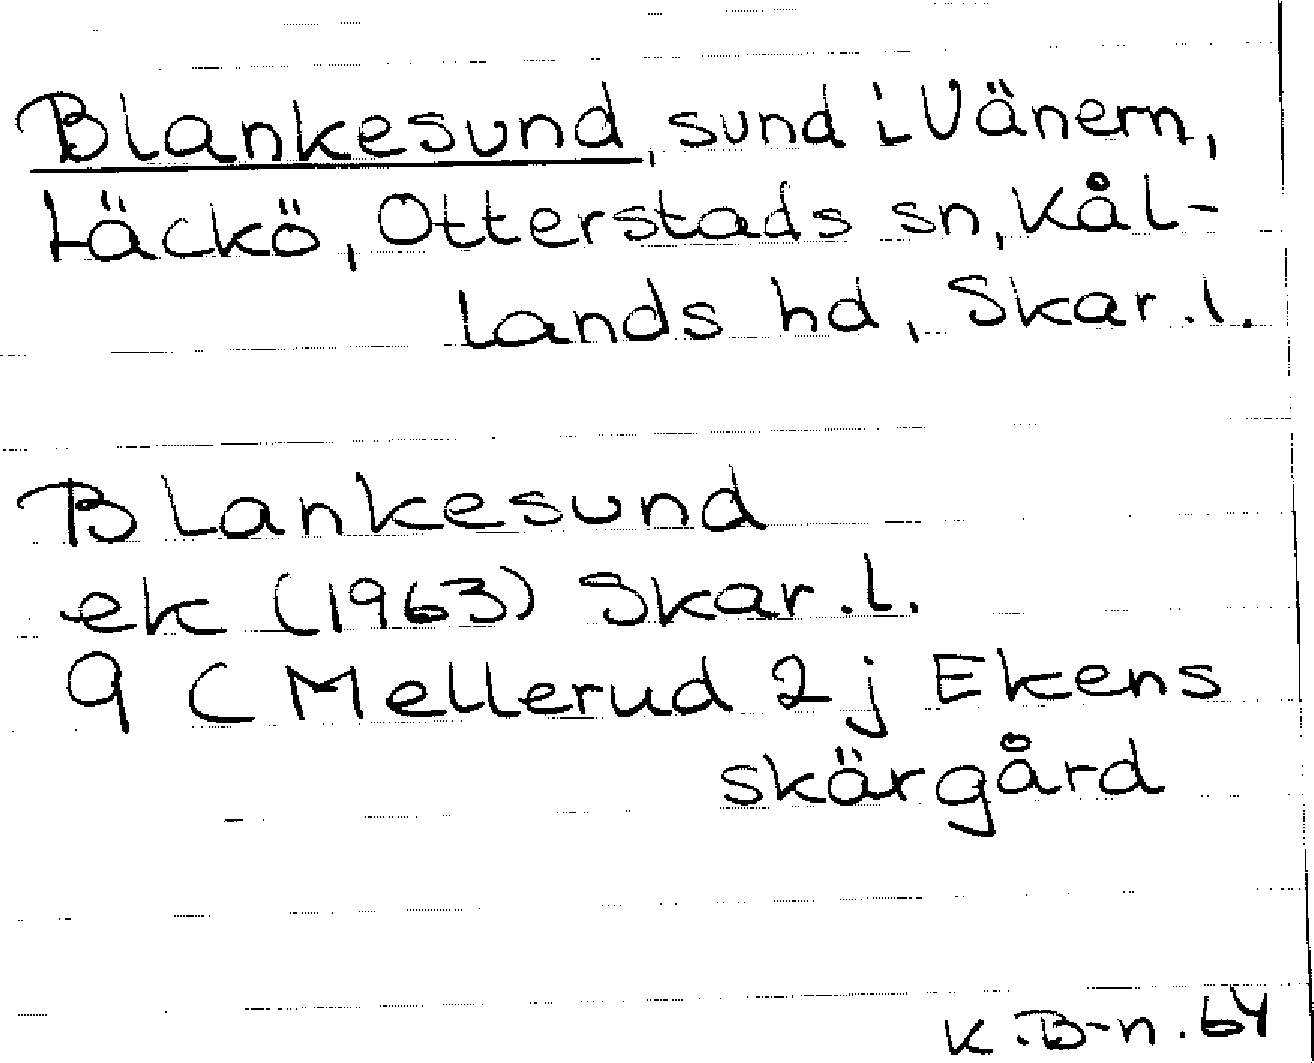 Blankesund, sund i Vänern,
Läckö, Otterstads sn, Kål-
lands hd, Skar.l.
Blankesund
ek (1963) Skar.l.
9 C Mellerud 2 j Ekens
skärgård
K.B-n. 64